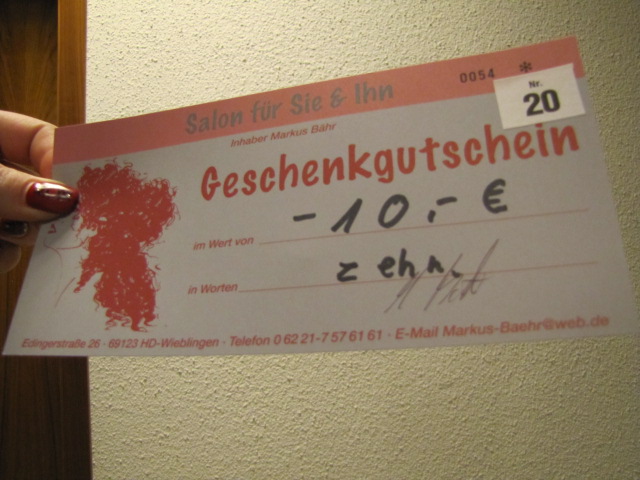 0054 *
Nr.
20
Salon für Sie & Ihn
Inhaber Markus Bähr
Geschenkgutschein
im Wert von - 10,- €
in Worten zehn.
Edingerstraße 26 · 69123 HD-Wieblingen · Telefon 0 62 21-7 57 61 61 · E-Mail Markus-Baehr@web.de